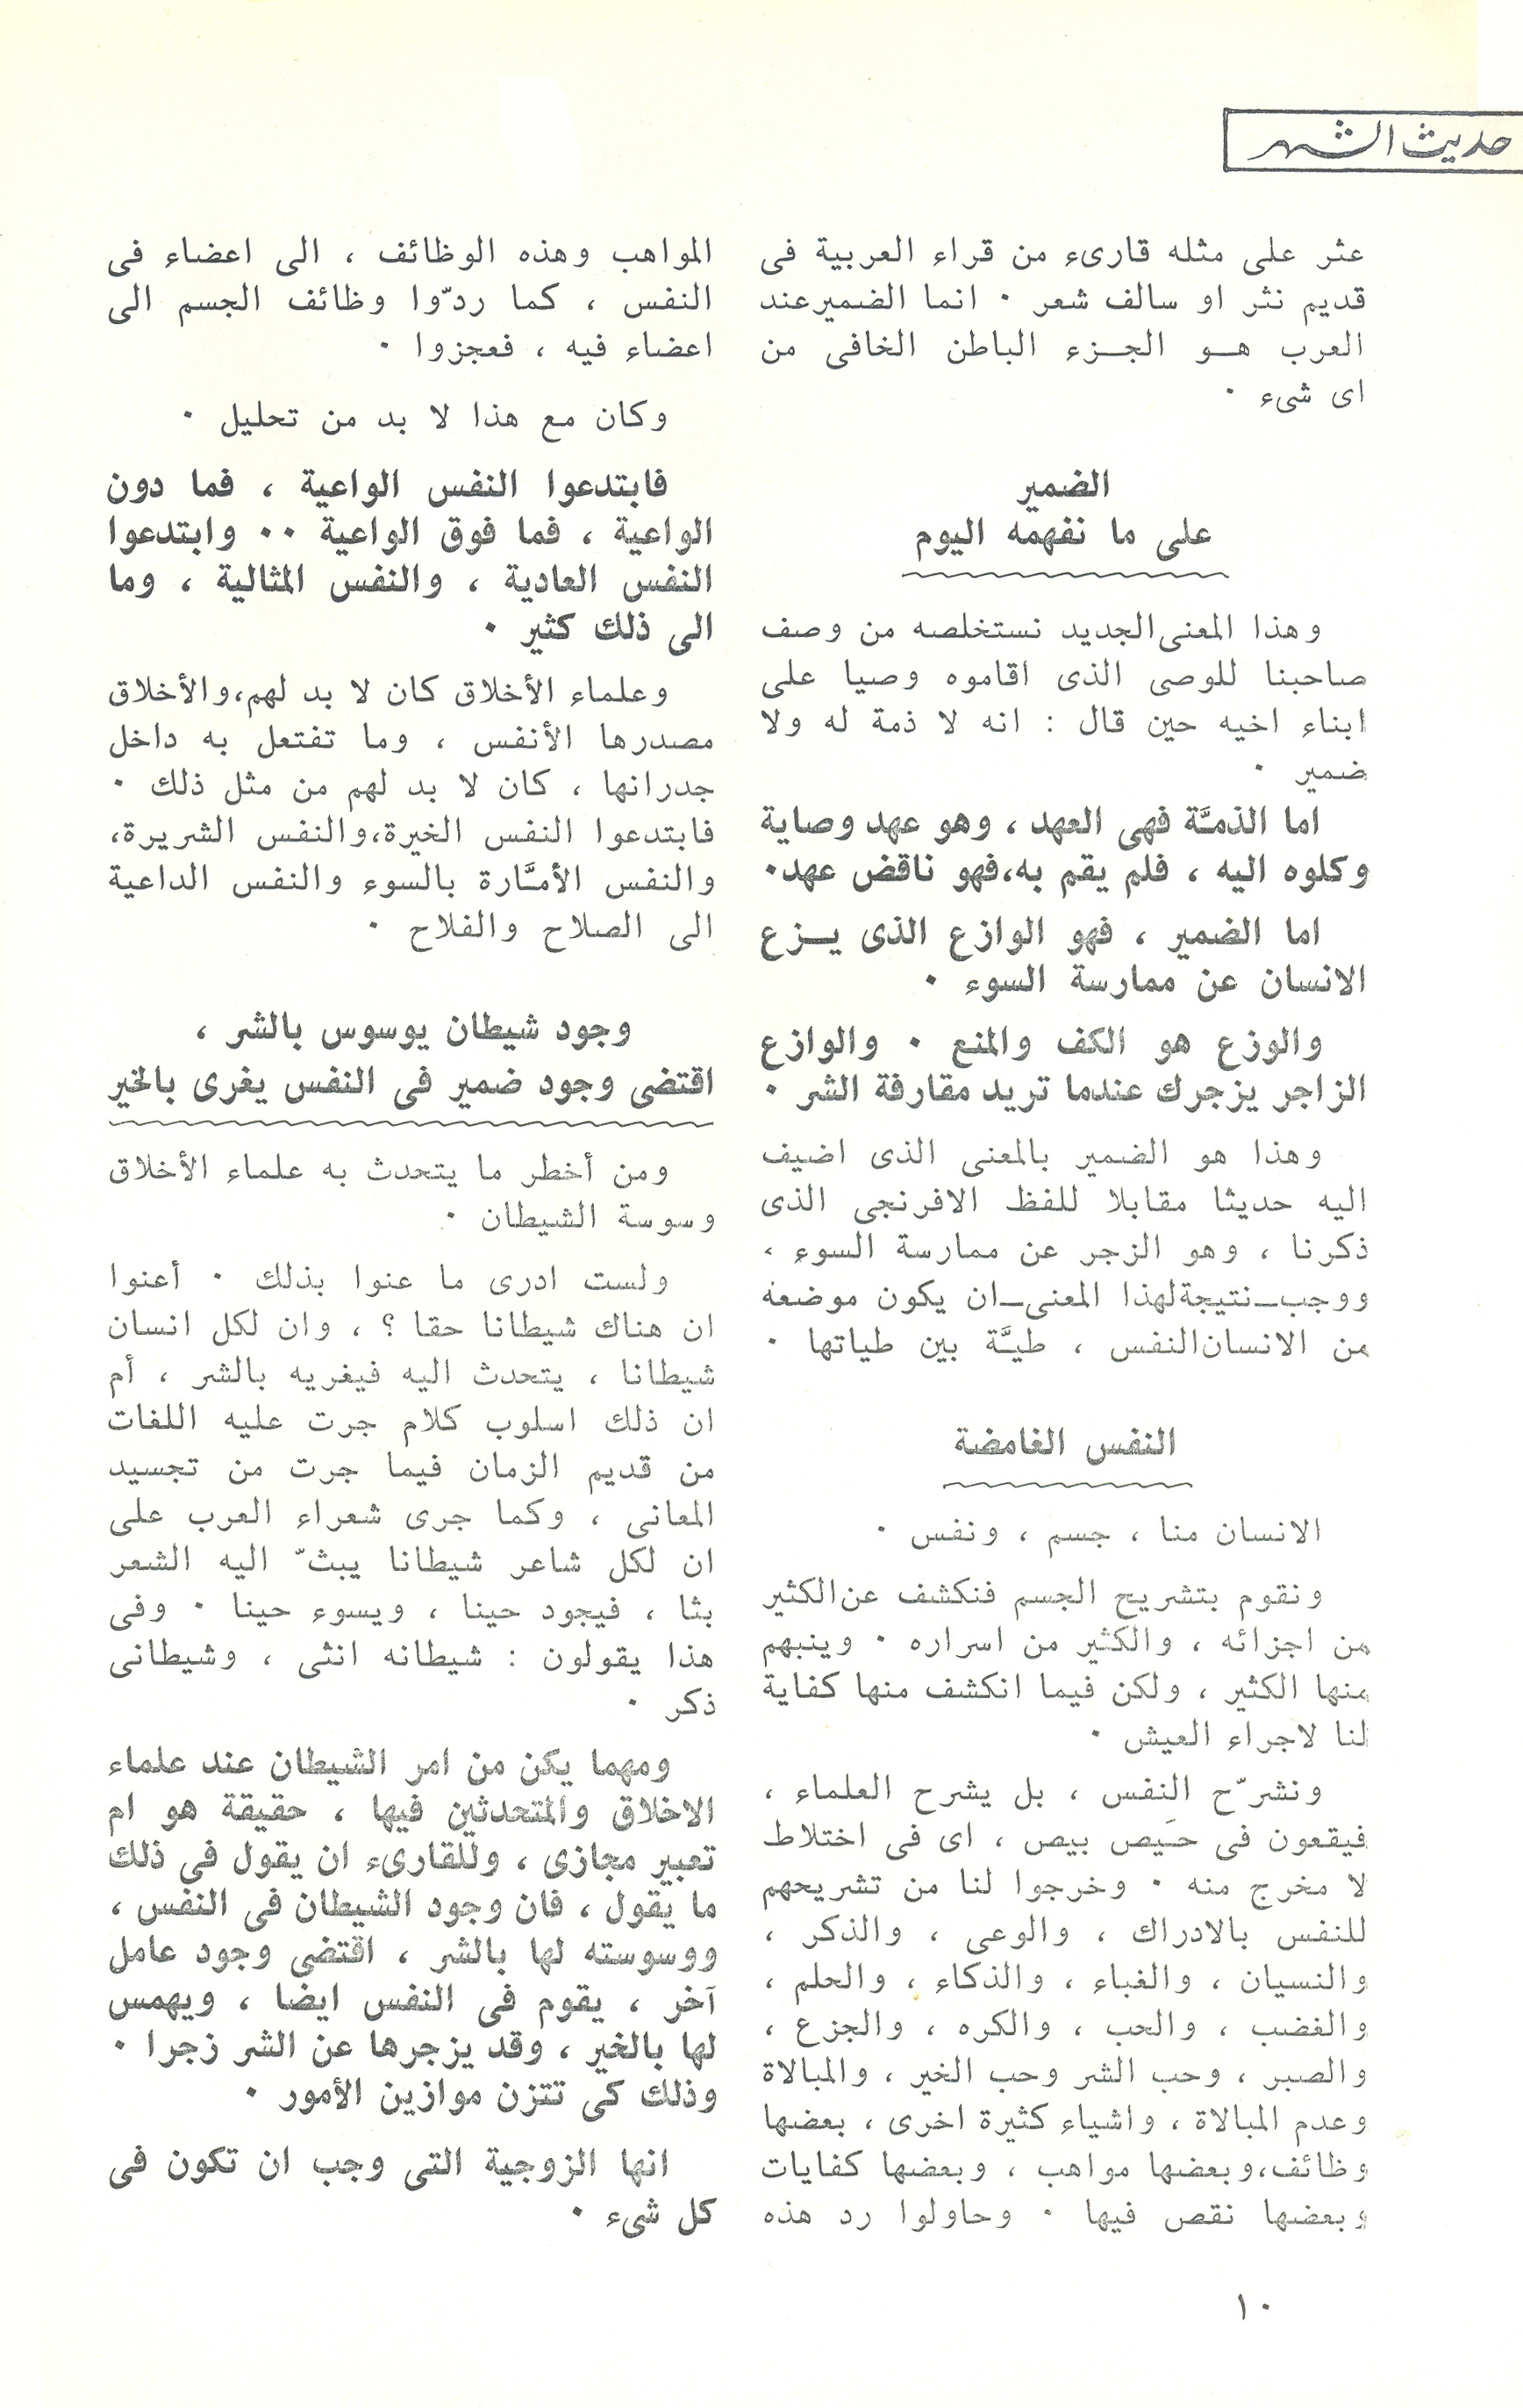 حديث الشهر
عثر على مثله قارىء من قراء العربية فى
قديم نثر او سالف شعر ٠ انما الضمير عند
العرب هــو الجــزء الباطن الخافى من
اى شىء ٠
الضمير
على ما نفهمه اليوم
وهذا المعنى الجديد نستخلصه من وصف
صاحبنا للوصى الذى اقاموه وصيا على
ابناء اخيه حين قال : انه لا ذمة له ولا
ضمير ٠
اما الذمَّة فهى العهد ، وهو عهد وصاية
وكلوه اليه ، فلم يقم به، فهو ناقض عهد٠
اما الضمير ، فهو الوازع الذى يــزع
الانسان عن ممارسة السوء ٠
والوزع هو الكف والمنع ٠ والوازع
الزاجر يزجرك عندما تريد مقارفة الشر ٠
وهذا هو الضمير بالمعنى الذى اضيف
اليه حديثا مقابلا للفظ الافرنجى الذى
ذكرنا ، وهو الزجر عن ممارسة السوء ،
ووجب ــ نتيجة لهذا المعنى ــ ان يكون موضعه
من الانسان النفس ، طيَّة بين طياتها ٠
النفس الغامضة
الانسان منا ، جسم ، ونفس ٠
ونقوم بتشريح الجسم فنكشف عن الكثير
من اجزائه ، والكثير من اسراره ٠ وينبهم
منها الكثير ، ولكن فيما انكشف منها كفاية
لنا لاجراء العيش ٠
ونشرّح النفس ، بل يشرح العلماء ،
فيقعون فى حَيص بيص ، اى فى اختلاط
لا مخرج منه ٠ وخرجوا لنا من تشريحهم
للنفس بالادراك ، والوعى ، والذكر ،
والنسيان ، والغباء ، والذكاء ، والحلم ،
والغضب ، والحب ، والكره ، والجزع ،
والصبر ، وحب الشر وحب الخير ، والمبالاة
وعدم المبالاة ، واشياء كثيرة اخرى ، بعضها
وظائف، وبعضها مواهب ، وبعضها كفايات
وبعضها نقص فيها ٠ وحاولوا رد هذه
المواهب وهذه الوظائف ، الى اعضاء فى
النفس ، كما ردّوا وظائف الجسم الى
اعضاء فيه ، فعجزوا ٠
وكان مع هذا لا بد من تحليل ٠
فابتدعوا النفس الواعية ، فما دون
الواعية ، فما فوق الواعية ٠٠ وابتدعوا
النفس العادية ، والنفس المثالية ، وما
الى ذلك كثير ٠
وعلماء الأخلاق كان لا بد لهم، والأخلاق
مصدرها الأنفس ، وما تفتعل به داخل
جدرانها ، كان لا بد لهم من مثل ذلك ٠
فابتدعوا النفس الخيرة، والنفس الشريرة،
والنفس الأمَّارة بالسوء والنفس الداعية
الى الصلاح والفلاح ٠
وجود شيطان يوسوس بالشر ،
اقتضى وجود ضمير فى النفس يغرى بالخير
ومن أخطر ما يتحدث به علماء الأخلاق
وسوسة الشيطان ٠
ولست ادرى ما عنوا بذلك ٠ أعنوا
ان هناك شيطانا حقا ؟ ، وان لكل انسان
شيطانا ، يتحدث اليه فيغريه بالشر ، أم
ان ذلك اسلوب كلام جرت عليه اللغات
من قديم الزمان فيما جرت من تجسيد
المعانى ، وكما جرى شعراء العرب على
ان لكل شاعر شيطانا يبثّ اليه الشعر
بثا ، فيجود حينا ، ويسوء حينا ٠ وفى
هذا يقولون : شيطانه انثى ، وشيطانى
ذكر ٠
ومهما يكن من امر الشيطان عند علماء
الاخلاق والمتحدثين فيها ، حقيقة هو ام
تعبير مجازى ، وللقارىء ان يقول فى ذلك
ما يقول ، فان وجود الشيطان فى النفس ،
ووسوسته لها بالشر ، اقتضى وجود عامل
آخر ، يقوم فى النفس ايضا ، ويهمس
لها بالخير ، وقد يزجرها عن الشر زجرا ٠
وذلك كى تتزن موازين الأمور ٠
انها الزوجية التى وجب ان تكون فى
كل شىء ٠
١٠